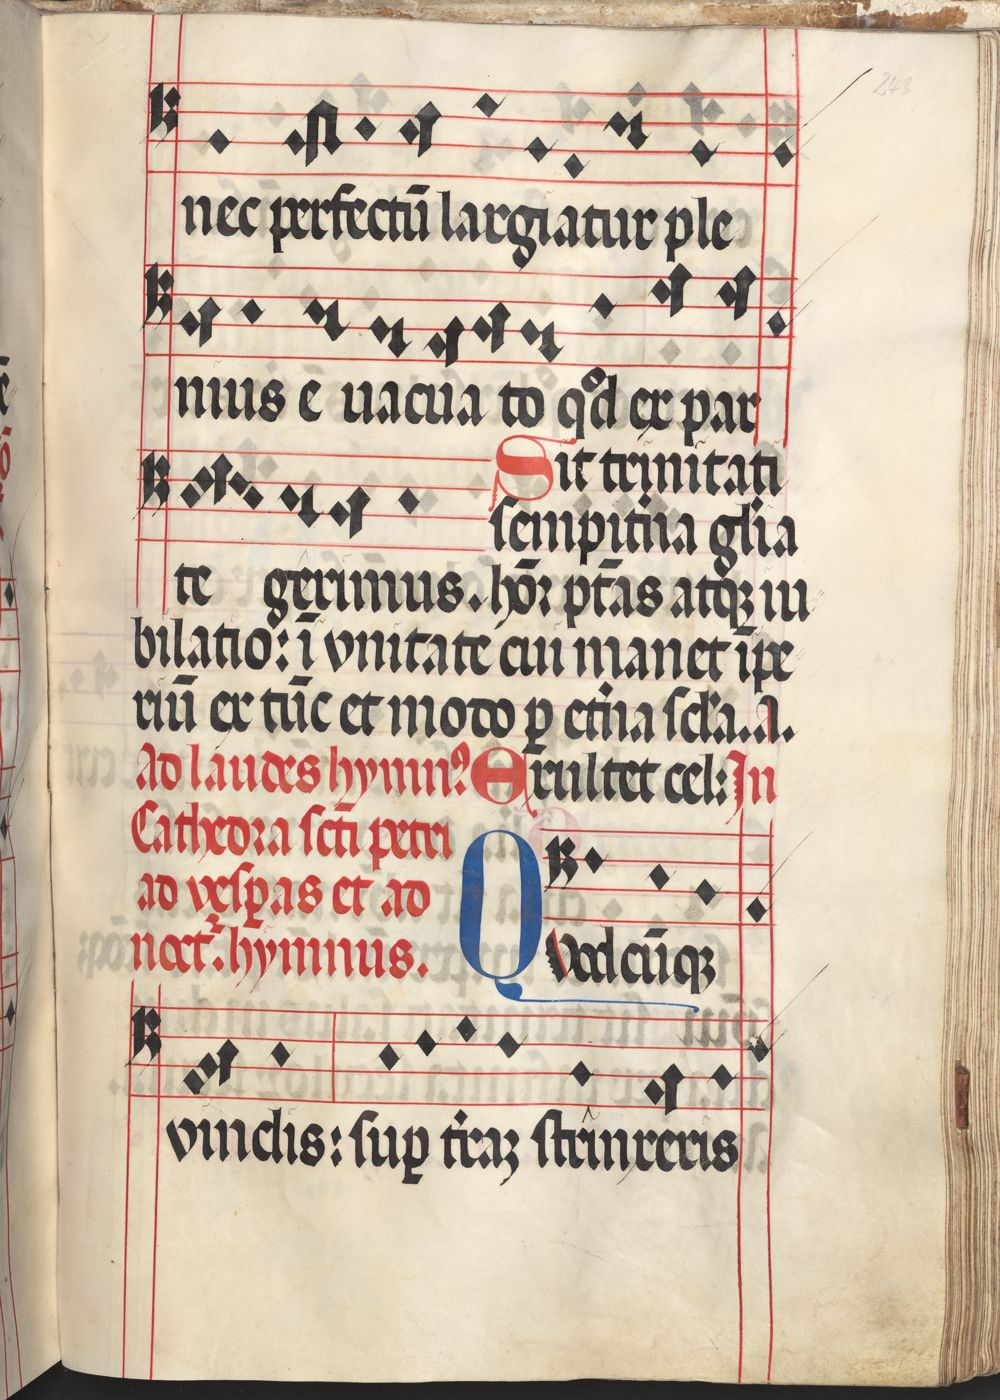 243
nec perfectū largiatur ple
nius e uacua to qd ex par
Sit trinitati
sempitna glia
te gerimus. hor ptas atqz iu
bilatio: ī vnitate cui manet īpe
riū ex tūc et modo p etna scla. a.
Ad laudes hymn9 Exultet cel: In
Cathedra scti petri
ad vespas et ad
noct. hymnus.
Quodcūqz
vinclis: sup traz strinxeris